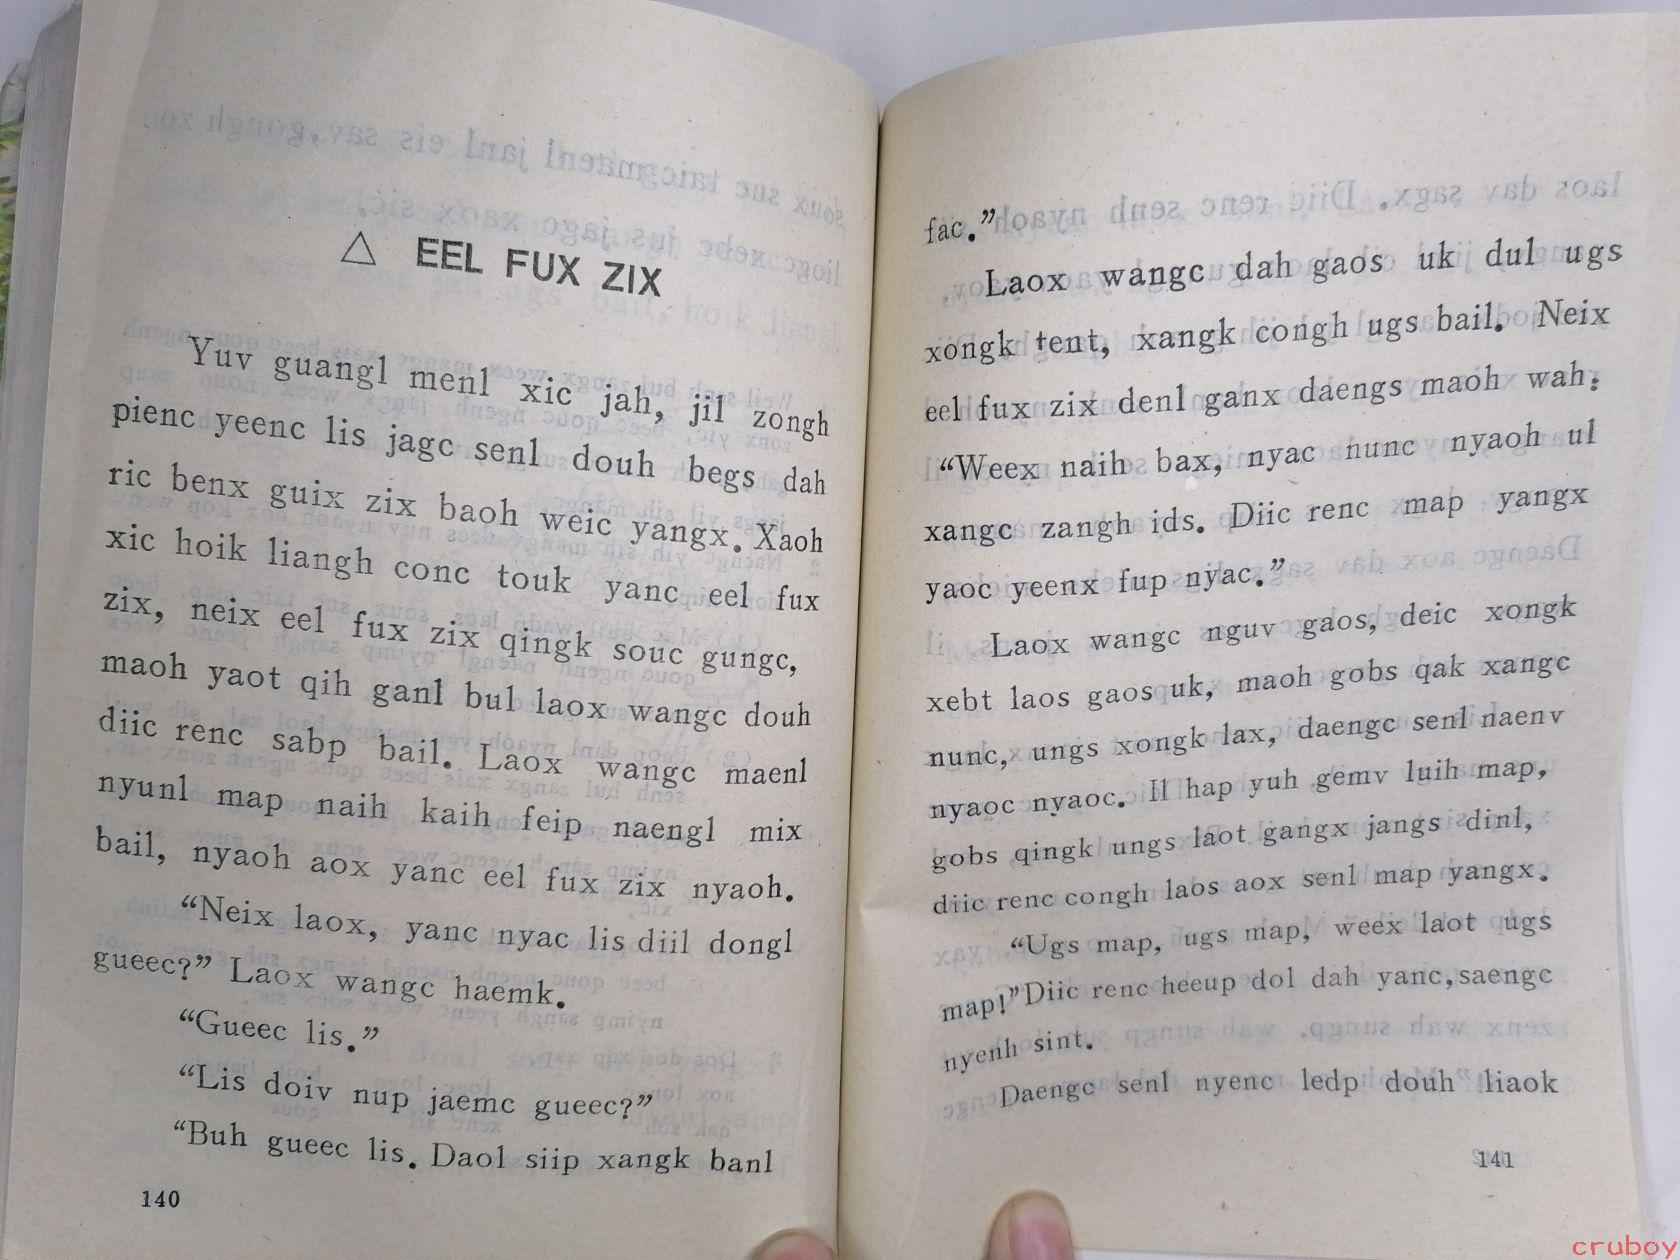 △ EEL FUX ZIX
Yuv guangl menl xic jah, jil zongh
pienc yeenc lis jagc senl douh begs dah
ric benx guix zix baoh weic yangx. Xaoh
xic hoik liangh conc touk yanc eel fux
zix, neix eel fux zix qingk souc gungc,
maoh yaot qih ganl bul laox wangc douh
diic renc sabp bail. Laox wangc maenl
nyunl map naih kaih feip naengl mix
bail, nyaoh aox yanc eel fux zix nyaoh.
“Neix laox, yanc nyac lis diil dongl
gueec?” Laox wangc haemk.
“Gueec lis.”
“Lis doiv nup jaemc gueec?”
“Buh gueec lis. Daol siip xangk banl
140
fac.”
Laox wangc dah gaos uk dul ugs
xongk tent, xangk congh ugs bail. Neix
eel fux zix denl ganx daengs maoh wah:
“Weex naih bax, nyac nunc nyaoh ul
xangc zangh ids. Diic renc map yangx
yaoc yeenx fup nyac.”
Laox wangc nguv gaos, deic xongk
xebt laos gaos uk, maoh gobs qak xangc
nunc, ungs xongk lax, daengc senl naenv
nyaoc nyaoc. Il hap yuh gemv luih map,
gobs qingk ungs laot gangx jangs dinl,
diic renc congh laos aox senl map yangx.
“Ugs map, ugs map, weex laot ugs
map!” Diic renc heeup dol dah yanc, saengc
nyenh sint.
Daengc senl nyenc ledp douh liaok
141
cruboy